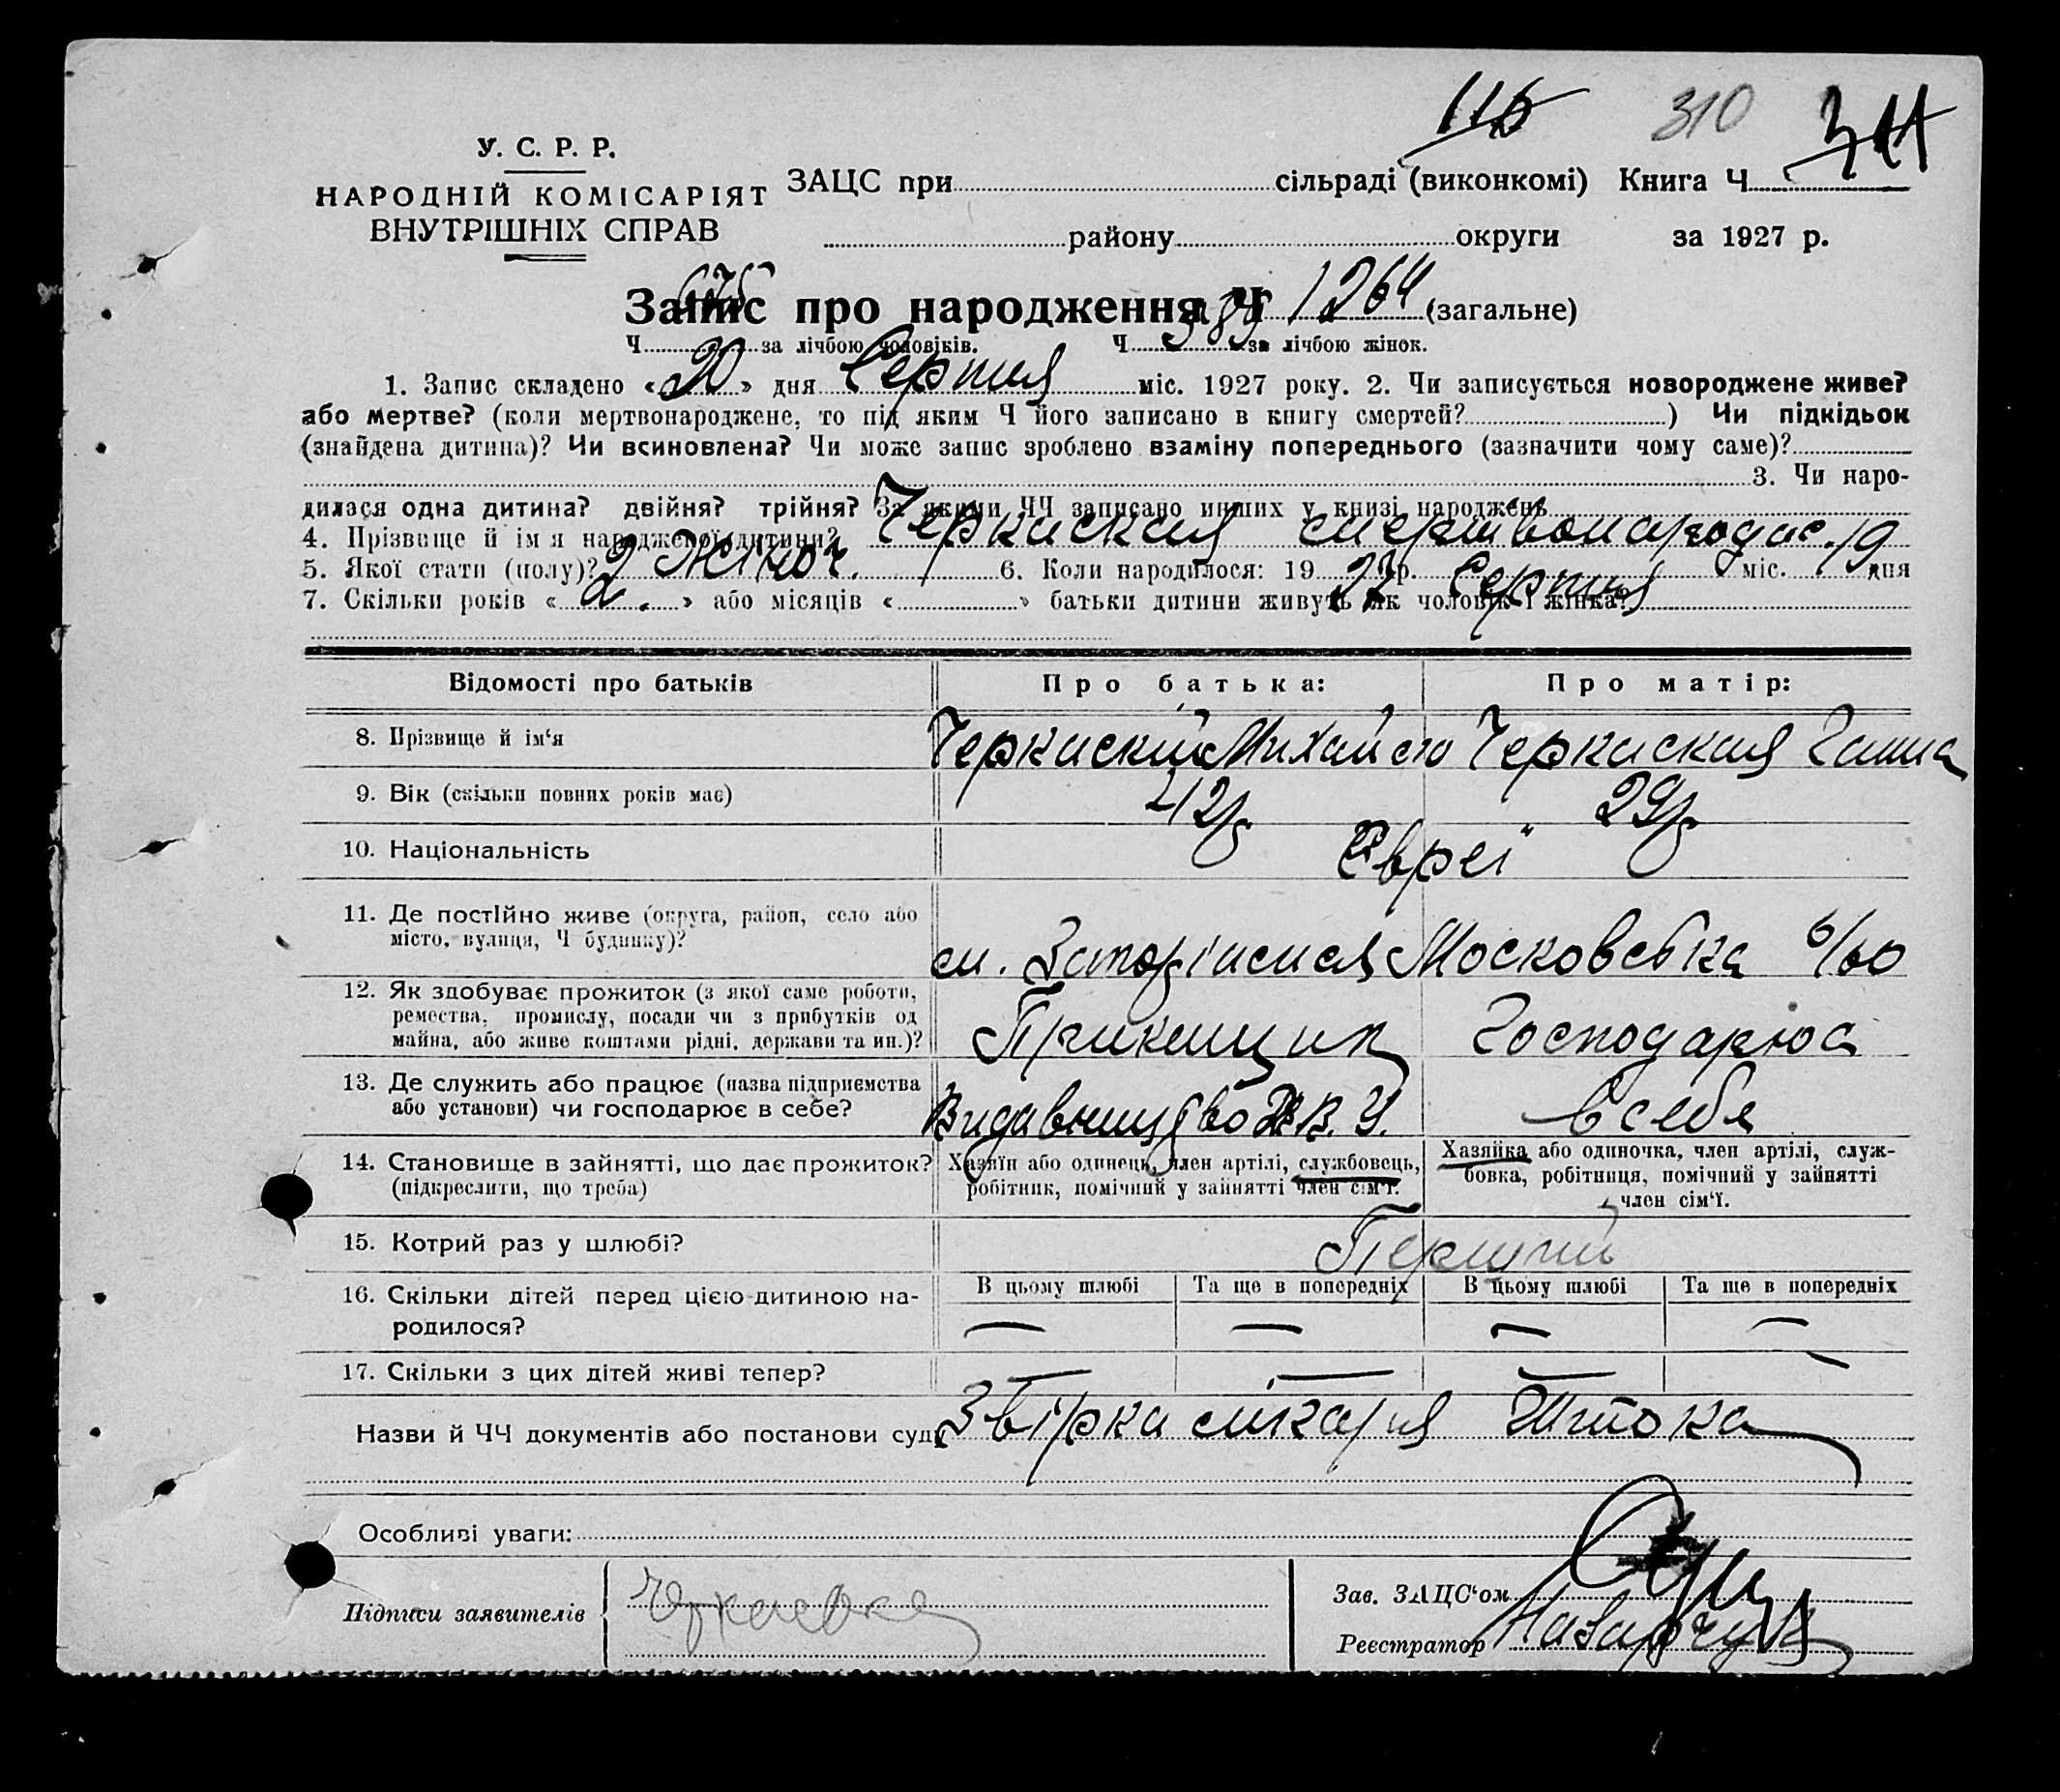 115 310 311
У. С. Р. Р.
НАРОДНІЙ КОМІСАРІЯТ
ВНУТРІШНІХ СПРАВ
ЗАЦС при сільраді (виконкомі) Книга Ч
району округи за 1927 р.
Запис про народження Ч 1264 (загальне)
Ч за лічбою чоловіків. Ч за лічбою жінок.
1. Запис складено «20» дня Серпня міс. 1927 року. 2. Чи записується новороджене живе?
або мертве? (коли мертвонароджене, то під яким Ч його записано в книгу смертей? ) Чи підкідьок
(знайдена дитина)? Чи всиновлена? Чи може запис зроблено взаміну попереднього (зазначити чому саме)?
3. Чи наро-
дилася одна дитина? двійня? трійня? За якими ЧЧ записано инших у книзі народжень
4. Прізвище й ім'я народженої дитини? Черкаская мертвонародж.
5. Якої стати (полу)? Жіноч. 6. Коли народилося: 1927 р. Серпня міс. 19 дня
7. Скільки років «2.» або місяців « » батьки дитини живуть як чоловік і жінка?
Відомості про батьків Про батька: Про матір:
8. Прізвище й ім'я Черкаский Михайло Черкаская Ганна
9. Вік (скільки повних років має) 42р 29р
10. Національність Євреї
11. Де постійно живе (округа, район, село або
місто, вулиця, Ч будинку)? м. Запоріжжя Московська 6/60
12. Як здобуває прожиток (з якої саме роботи,
ремества, промислу, посади чи з прибутків од
майна, або живе коштами рідні, держави та ин.)? Прикащик Господарює
13. Де служить або працює (назва підприємства
або установи) чи господарює в себе? Видавництво В. У. в себе
14. Становище в зайнятті, що дає прожиток?
(підкреслити, що треба)
Хазяїн або одинець, член артілі, службовець,
робітник, помічний у зайнятті член сім'ї.
Хазяйка або одиночка, член артілі, служ-
бовка, робітниця, помічний у зайнятті
член сім'ї.
15. Котрий раз у шлюбі? Перший
16. Скільки дітей перед цією дитиною на-
родилося?
В цьому шлюбі Та ще в попередніх В цьому шлюбі Та ще в попередніх
— — — —
17. Скільки з цих дітей живі тепер? — — — —
Назви й ЧЧ документів або постанови суду Звірка лікаря
Особливі уваги:
Підписи заявителів
Зав. ЗАЦС'ом
Реєстратор Назарчук